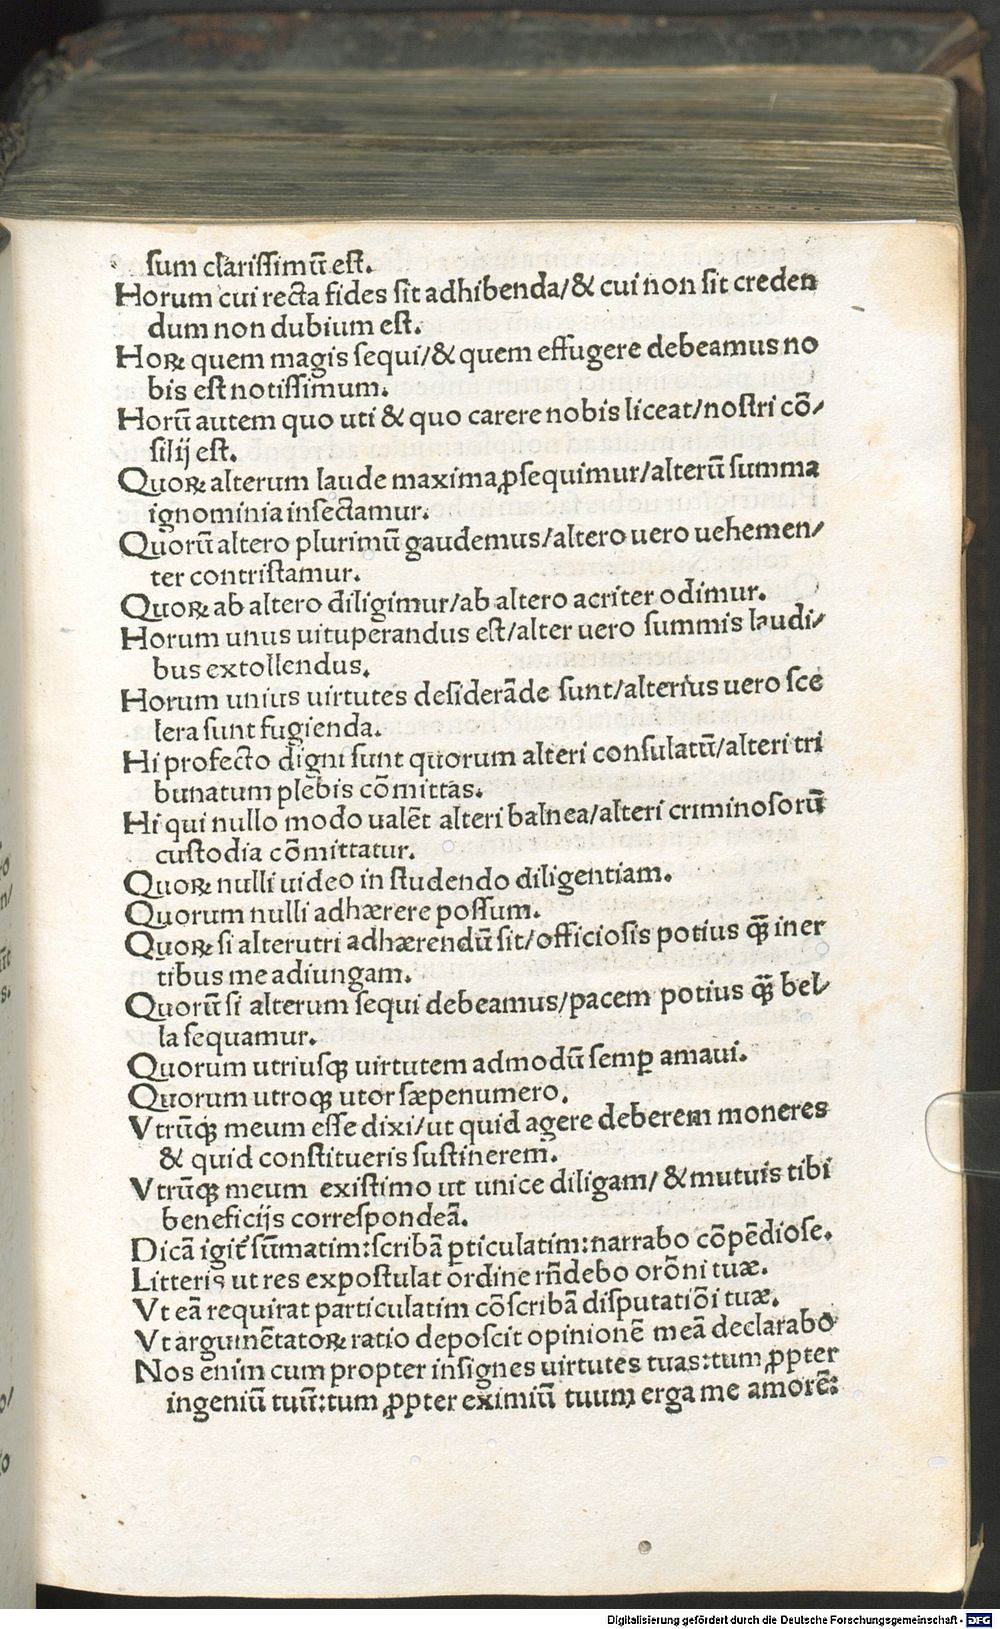 sum clarissimū est.
Horum cui recta fides sit adhibenda/& cui non sit creden
dum non dubium est.
Hoꝝ quem magis sequi/& quem effugere debeamus no
bis est notissimum.
Horū autem quo uti & quo carere nobis liceat/nostri cō/
silij est.
Quoꝝ alterum laude maxima ꝓsequimur/alterū summa
ignominia insectamur.
Quorū altero plurimū gaudemus/altero uero uehemen/
ter contristamur.
Quoꝝ ab altero diligimur/ab altero acriter odimur.
Horum unus uituperandus est/alter uero summis laudi/
bus extollendus.
Horum unius uirtutes desiderāde sunt/alterius uero sce
lera sunt fugienda.
Hi profecto digni sunt quorum alteri consulatū/alteri tri
bunatum plebis cōmittas.
Hi qui nullo modo ualēt alteri balnea/alteri criminosorū
custodia cōmittatur.
Quoꝝ nulli uideo in studendo diligentiam.
Quorum nulli adhærere possum.
Quoꝝ si alterutri adhærendū sit/officiosis potius ꝙ̄ iner
tibus me adiungam.
Quorū si alterum sequi debeamus/pacem potius ꝙ̄ bel/
la sequamur.
Quorum utriusqꝫ uirtutem admodū semꝑ amaui.
Quorum utroqꝫ utor sæpenumero.
Vtrūqꝫ meum esse dixi/ut quid agere deberem moneres
& quid constitueris sustinerem.
Vtrūqꝫ meum existimo ut unice diligam/ & mutuis tibi
beneficijs correspondeā.
Dicā igit᷑ sūmatim:scribā ꝑticulatim:narrabo cōpēdiose.
Litteris ut res expostulat ordine rn̄debo orōni tuæ.
Vt eā requirat particulatim cōscribā disputatiōi tuæ.
Vt argumētatoꝝ ratio deposcit opinionē meā declarabo
Nos enim cum propter insignes uirtutes tuas:tum ꝓpter
ingeniū tuū:tum ꝓpter eximiū tuum erga me amorē:
Digitalisierung gefördert durch die Deutsche Forschungsgemeinschaft - DFG